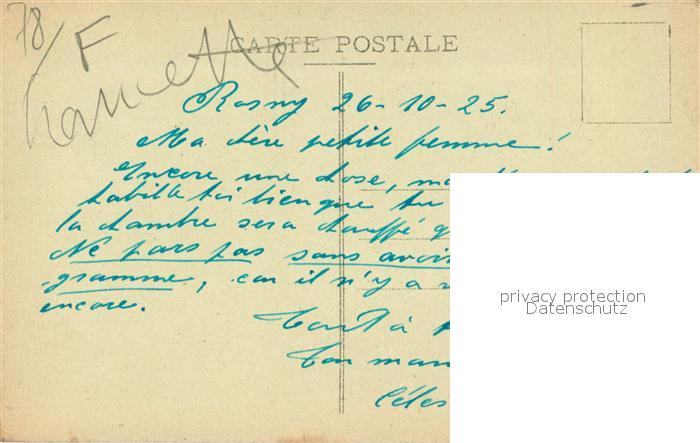 78/
F
CARTE POSTALE
Rosny 26-10-25.
Ma chère petite femme!
Encore une chose,
habille toi bien que tu
la chambre sera chauffé
Ne pars pas sans avoir
gramme, car il n'y a
encore.
Tout à
Ton
privacy protection
Datenschutz